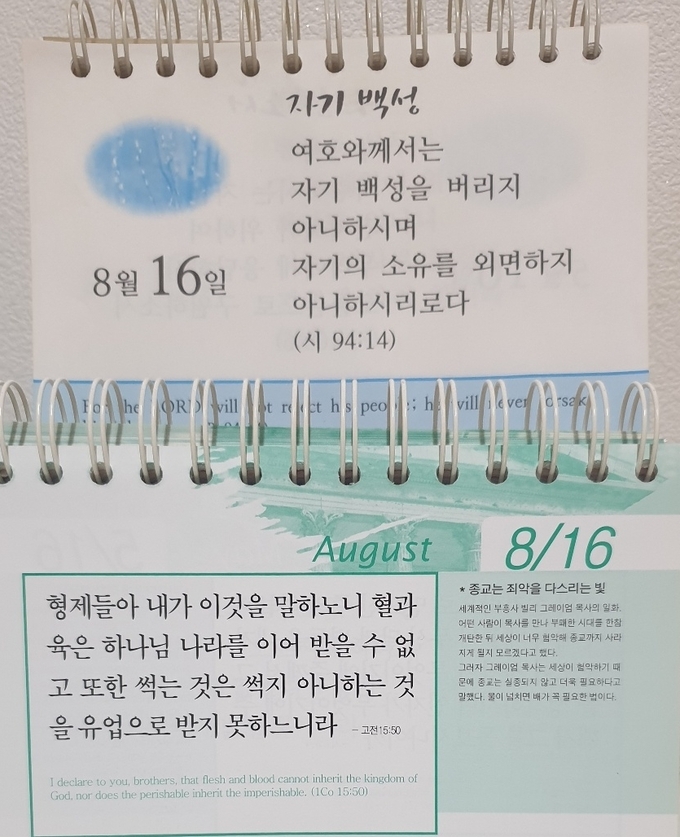 자기 백성
여호와께서는
자기 백성을 버리지
아니하시며
자기의 소유를 외면하지
아니하시리로다
(시 94:14)
8월 16일
For the LORD will not reject his people; he will never forsake
August
8/16
형제들아 내가 이것을 말하노니 혈과
육은 하나님 나라를 이어 받을 수 없
고 또한 썩는 것은 썩지 아니하는 것
을 유업으로 받지 못하느니라 - 고전15:50
I declare to you, brothers, that flesh and blood cannot inherit the kingdom of
God, nor does the perishable inherit the imperishable. (1Co 15:50)
★ 종교는 죄악을 다스리는 빛
세계적인 부흥사 빌리 그레이엄 목사의 일화.
어떤 사람이 목사를 만나 부패한 시대를 한참
개탄한 뒤 세상이 너무 험악해 종교까지 사라
지게 될지 모르겠다고 했다.
그러자 그레이엄 목사는 세상이 험악하기 때
문에 종교는 실종되지 않고 더욱 필요하다고
말했다. 물이 넘치면 배가 꼭 필요한 법이다.